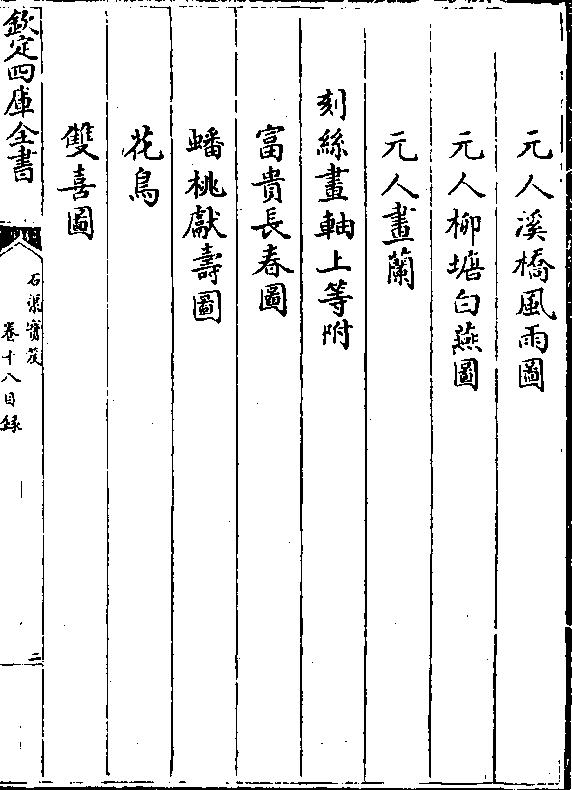 元人溪橋風雨圖
元人柳塘白燕圖
元人畫蘭
刻絲畫軸上等附
富貴長春圖
蟠桃獻壽圖
花鳥
雙喜圖
欽定四庫全書
石渠寳笈
卷十八目録
二